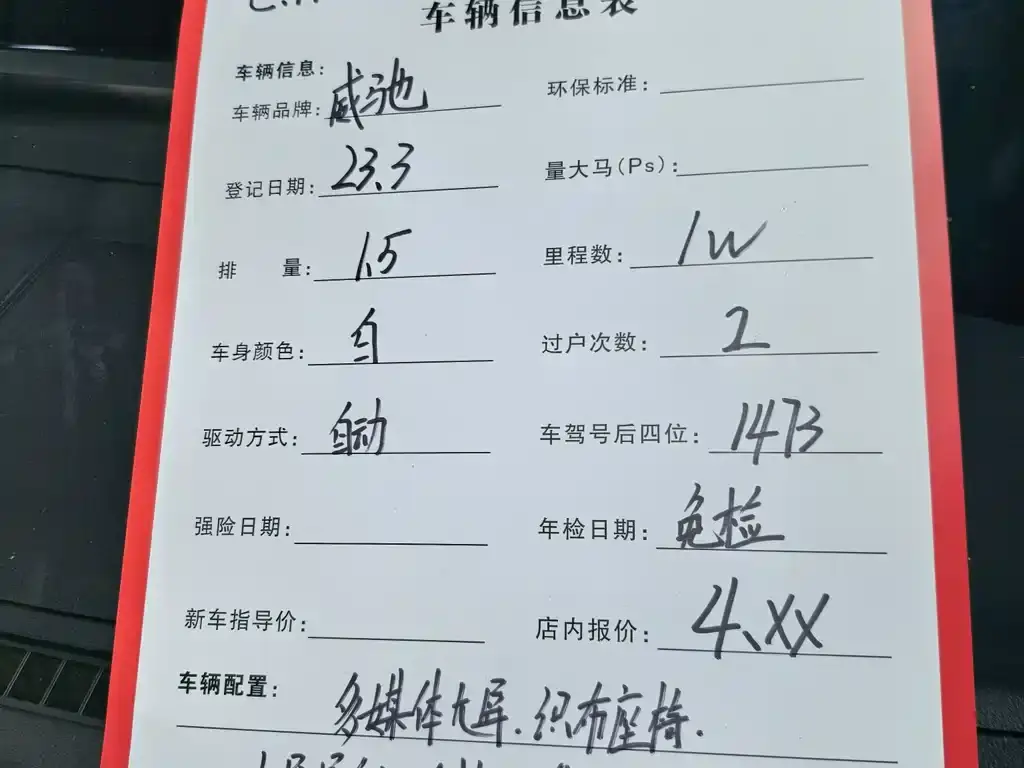 车辆信息表
车辆信息：
车辆品牌：威驰 环保标准：
登记日期：23.3 量大马(Ps)：
排 量：1.5 里程数：1W
车身颜色：白 过户次数：2
驱动方式：自动 车驾号后四位：1473
强险日期： 年检日期：免检
新车指导价： 店内报价：4.XX
车辆配置：多媒体大屏.织布座椅.